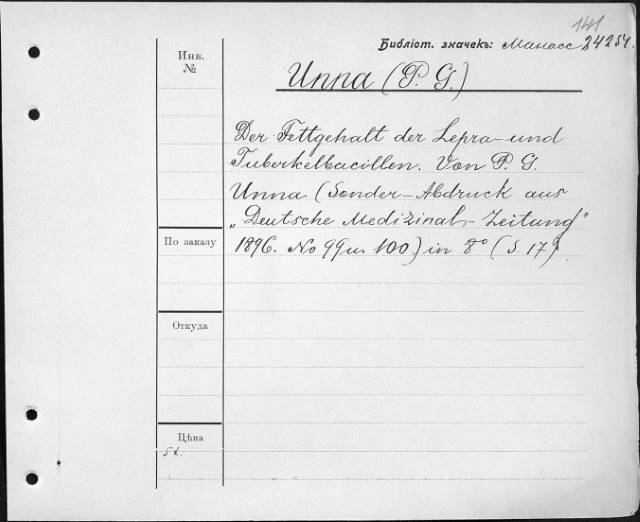 141
Библіот. значекъ: Манасс 24254.
Инв.
№
Unna (P. G.)
Der Fettgehalt der Lepra- und
Tuberkelbacillen. Von P. G.
Unna (Sonder-Abdruck aus
„Deutsche Medizinal-Zeitung"
1896. No 99 u. 100) in 8° (S. 17)
По заказу
Откуда
Цѣна